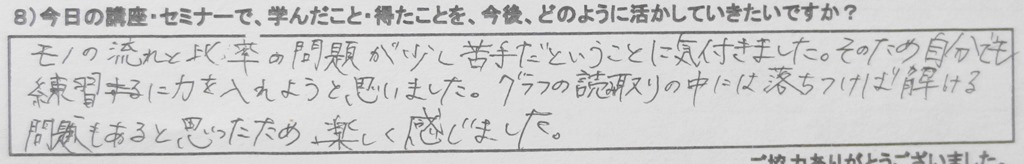 8)今日の講座・セミナーで、学んだこと・得たことを、今後、どのように活かしていきたいですか？
モノの流れと比、率の問題が少し苦手だということに気付きました。そのため自分でも
練習に力を入れようと思いました。グラフの読み取りの中には落ちつけば解ける
問題もあると思ったため、楽しく感じました。
ご協力ありがとうございました。